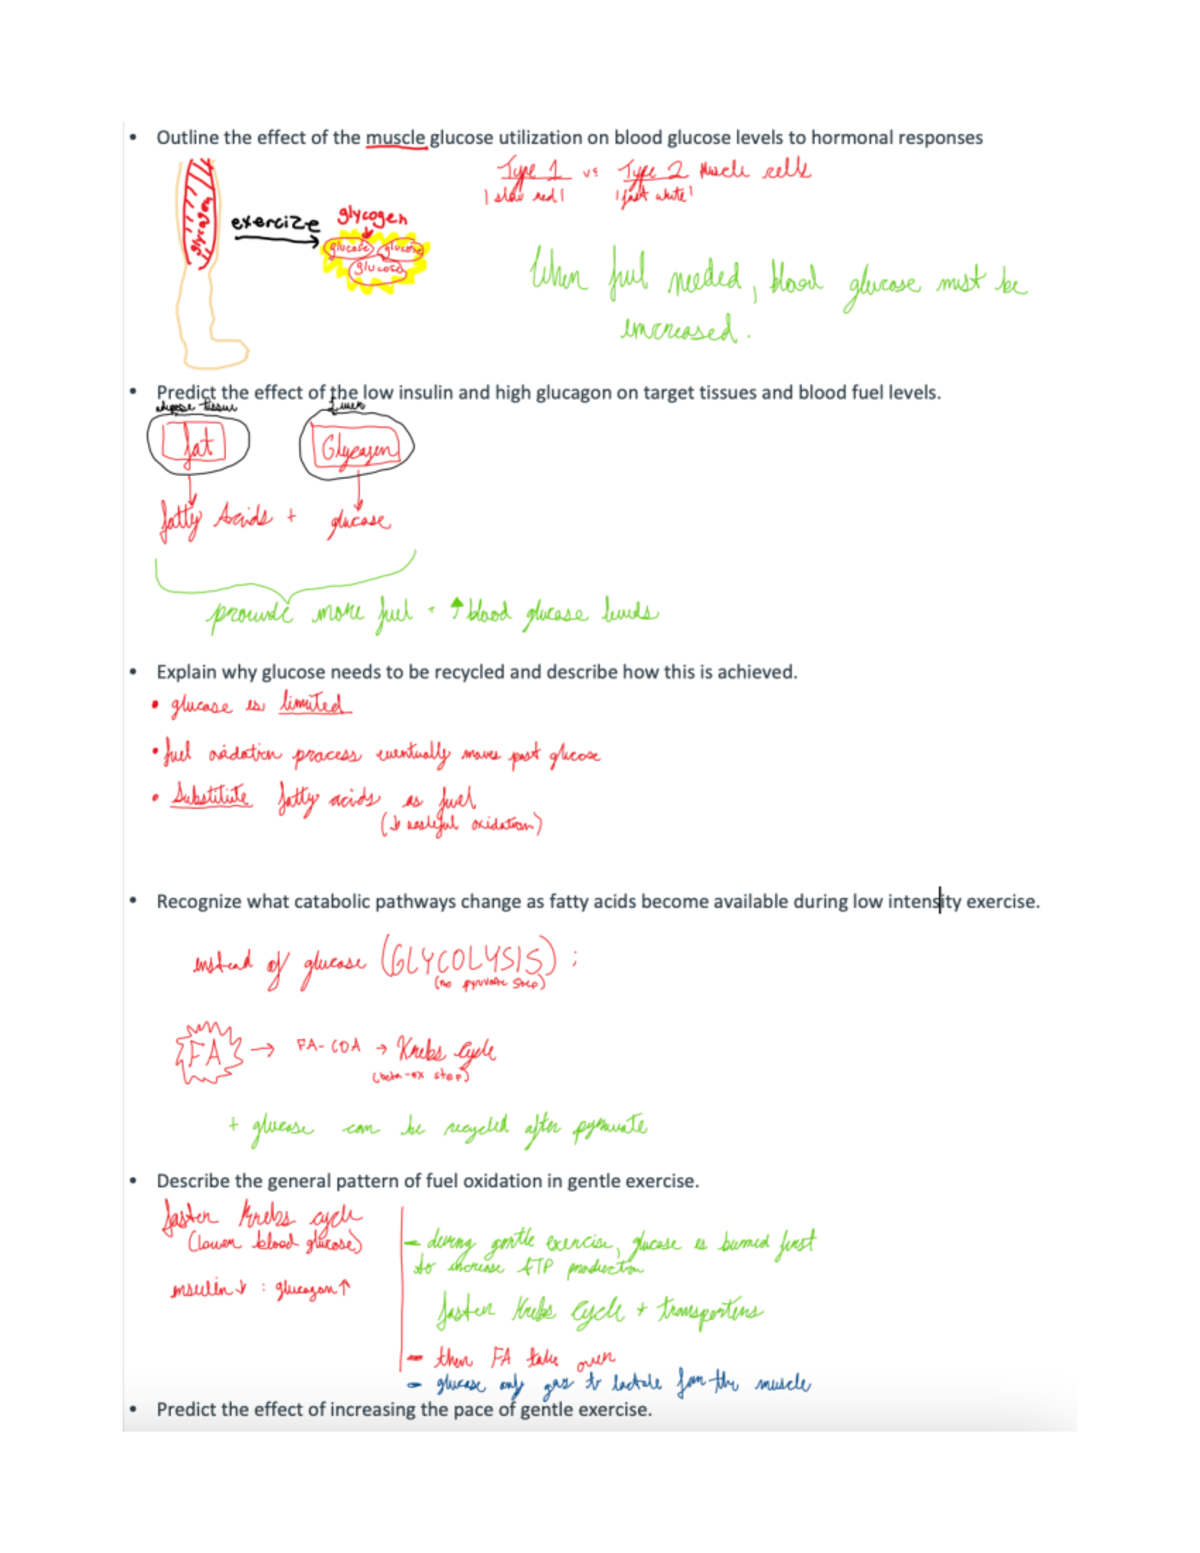 • Outline the effect of the muscle glucose utilization on blood glucose levels to hormonal responses
Type 1 vs Type 2 Muscle cells
|slow red| |fast white|
glycogen
exercize
glycogen
glucose glucose
glucose
When fuel needed, blood glucose must be
increased.
• Predict the effect of the low insulin and high glucagon on target tissues and blood fuel levels.
adipose tissue Liver
fat Glycogen
fatty Acids + glucose
provide more fuel - ↑ blood glucose levels
• Explain why glucose needs to be recycled and describe how this is achieved.
• glucose is limited
• fuel oxidation process eventually moves past glucose
• Substitute fatty acids as fuel
(↓ wasteful oxidation)
• Recognize what catabolic pathways change as fatty acids become available during low intensity exercise.
instead of glucose (GLYCOLYSIS) ;
(no pyruvate step)
FA → FA-COA → Krebs Cycle
(beta-ox step)
+ glucose can be recycled after pyruvate
• Describe the general pattern of fuel oxidation in gentle exercise.
faster Krebs cycle
(lower blood glucose)
insulin ↓ : glucagon ↑
- during gentle exercise, glucose is burned first
to increase ATP production
faster Krebs Cycle + transporters
- then FA take over
- glucose only goes to lactate from the muscle
• Predict the effect of increasing the pace of gentle exercise.